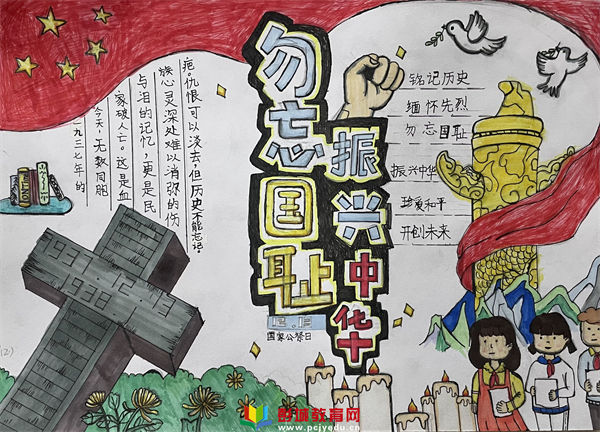 勿忘国耻
振兴中华
一九三七年的
今天,无数同胞
家破人亡。这是血
与泪的记忆,更是民
族心灵深处难以消弥的伤
疤。仇恨可以淡去,但历史不能忘记。
铭记历史
缅怀先烈
勿忘国耻
振兴中华
珍爱和平
开创未来
1937.12.13
国家公祭日
www.pcjyedu.cn